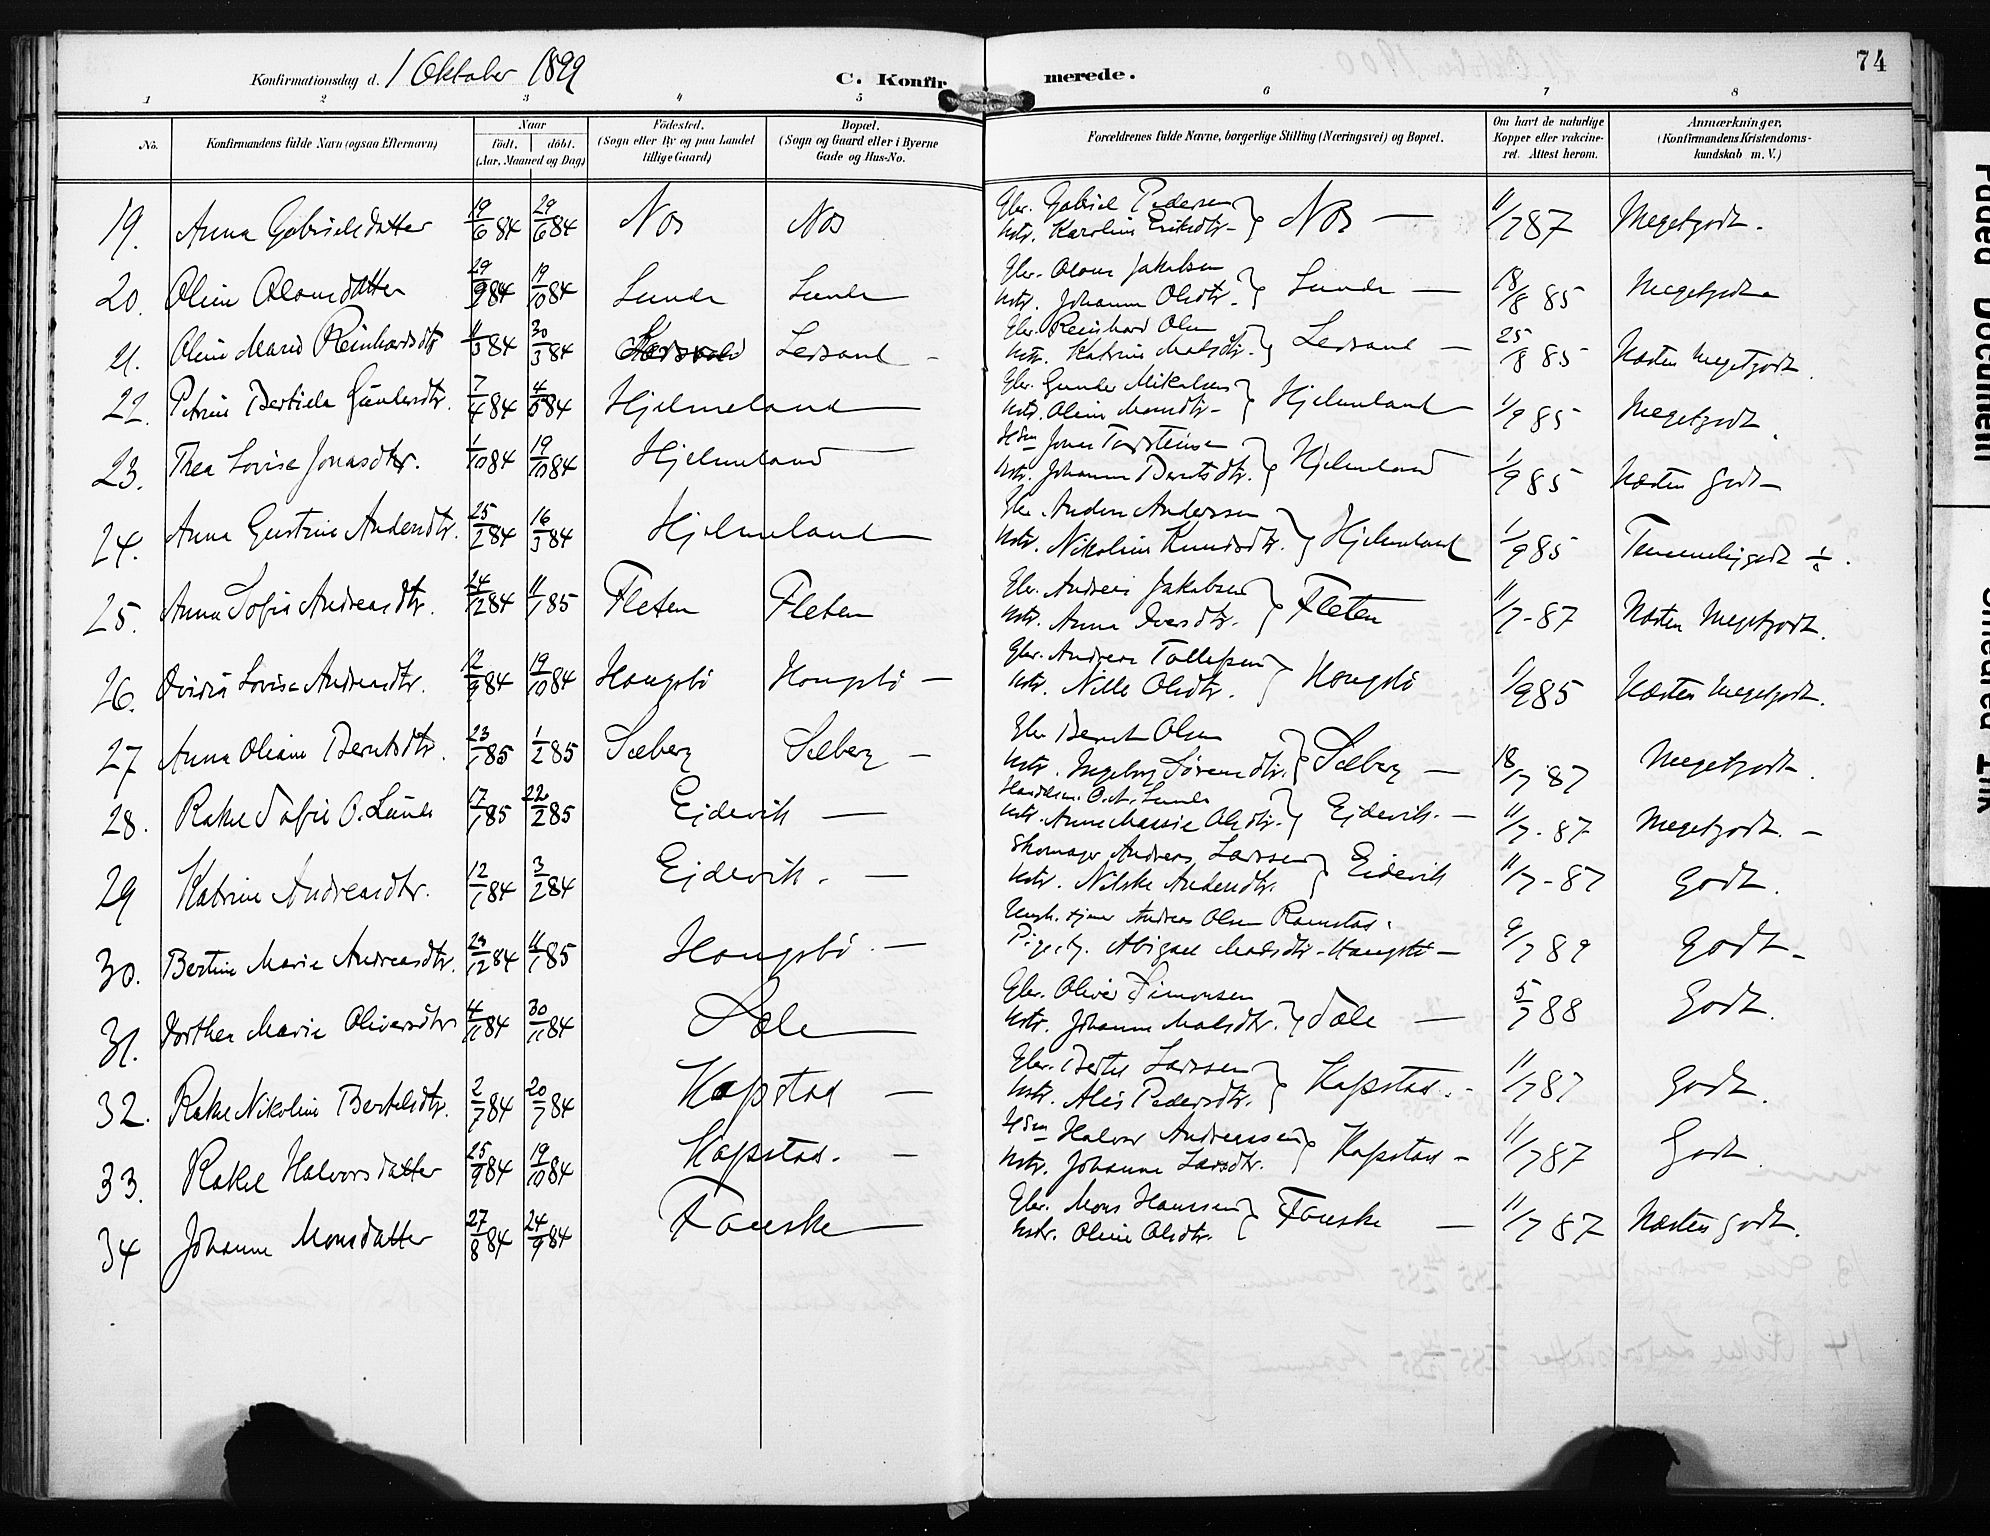 74
Konfirmationsdag d. 1 Oktober 1899
C. Konfirmerede.
1 2 3 4 5 6 7 8
No. Konfirmandens fulde Navn (ogsaa Efternavn) Naar født. døbt. (Aar, Maaned og Dag)
Fødested. (Sogn eller By og paa Landet tillige Gaard)
Bopæl. (Sogn og Gaard eller i Byerne Gade og Hus-No.
Forældrenes fulde Navne, borgerlige Stilling (Næringsvei) og Bopæl.
Om havt de naturlige Kopper eller vakcineret. Attest herom.
Anmærkninger. (Konfirmandens Kristendomskundskab m. V.)
19. Anna Gabrielsdatter 19/6 84 29/6 84 Nos Nos Gbr. Gabriel Pedersen Hstr. Karoline Eriksdtr- Nos — 11/7 87 Megetgodt.
20. Oline Olausdatter 29/9 84 19/10 84 Lunde Lunde Gbr. Olaus Jakobsen Hstr. Johanne Olsdtr. Lunde — 18/8 85 Megetgodt
21. Oline Marie Reinhardsdtr 11/3 84 30/3 84 Ledsaul - Gbr. Reinhard Olsen Hstr. Katrine Madsdtr. Ledsaul — 25/8 85 Næsten Megetgodt.
22. Petrine Bertiela Gundersdtr. 7/4 84 4/5 84 Hjelmeland — Gbr. Gunder Mikalsen Hstr. Oline Monsdtr- Hjelmeland 1/9 85 Megetgodt.
23. Thea Lovise Jonasdtr. 1/10 84 19/10 84 Hjelmeland — Hdm Jonas Torsteinsen Hstr. Johanne Berntsdtr. Hjelmeland 1/9 85 Næsten godt-
24. Anna Gustine Andersdtr. 25/2 84 16/3 84 Hjelmeland — Gbr. Anders Anderssen Hstr. Nikoline Knudsdtr. Hjelmeland 1/9 85 Temmeliggodt
25. Anna Sofie Andreasdtr. 24/12 84 11/1 85 Fleten Fleten Gbr. Andreas Jakobsen Hstr. Anna Iversdtr. Fleten 11/7-87 Næsten Megetgodt.
26. Ovidia Lovise Andreasdtr. 12/9 84 19/10 84 Hougsbö Hougsbö - Gbr. Andreas Tollefsen Hstr. Nille Olsdtr. Hougsbö 1/9 85 Næsten Megetgodt.
27 Anna Oliane Berntsdtr. 23/1 85 1/2 85 Sæberg Sæberg - Gbr Bernt Olsen Hstr. Ingeborg Sørensdtr. Sæberg — 18/7 87 Megetgodt.
28. Rakel Sofie O. Lunde 17/1 85 22/2 85 Eidevik — Handelsm. O. A. Lunde Hstr. Anne Massie Olsdtr. Eidevik. - 11/7-87 Megetgodt. -
29 Katrine Andreasdtr. 12/1 84 3/2 84 Eidevik. — Skomager Andreas Larssen Hstr. Nilske Andersdtr. Eidevik 11/7-87 Godt.
30. Bertine Marie Andreasdtr. 29/12 84 11/1 85 Hougsbö. — Ungk. Andreas Olsen Ramstad. Abigael Madsdtr-Hougsbö - 9/7 89 Godt-
31. Dorthea Marie Oliversdtr 4/11 84 30/11 84 Sæle — Gbr. Oliver Simonsen Hstr. Johanne Madsdtr. Sæle — 5/7 88 Godt.
32. Rakel Nikoline Bertelsdtr. 2/7 84 20/7 84 Kapstad — Gbr. Bertel Larssen Hstr. Alis Pedersdtr. Kapstad. - 11/7 87 Godt.
33. Rakel Halvorsdatter 25/9 84 19/10 84 Kapstad. - Hdm Halvor Andreassen Hstr. Johanne Larsdtr. Kapstad - 11/7 87 Godt.
34 Johanne Monsdatter 27/8 84 24/9 84 Fauske — Gbr. Mons Hanssen Hstr. Oline Olsdtr. Fauske — 11/7 87 Næsten godt.
Faded Document
Smeared Ink